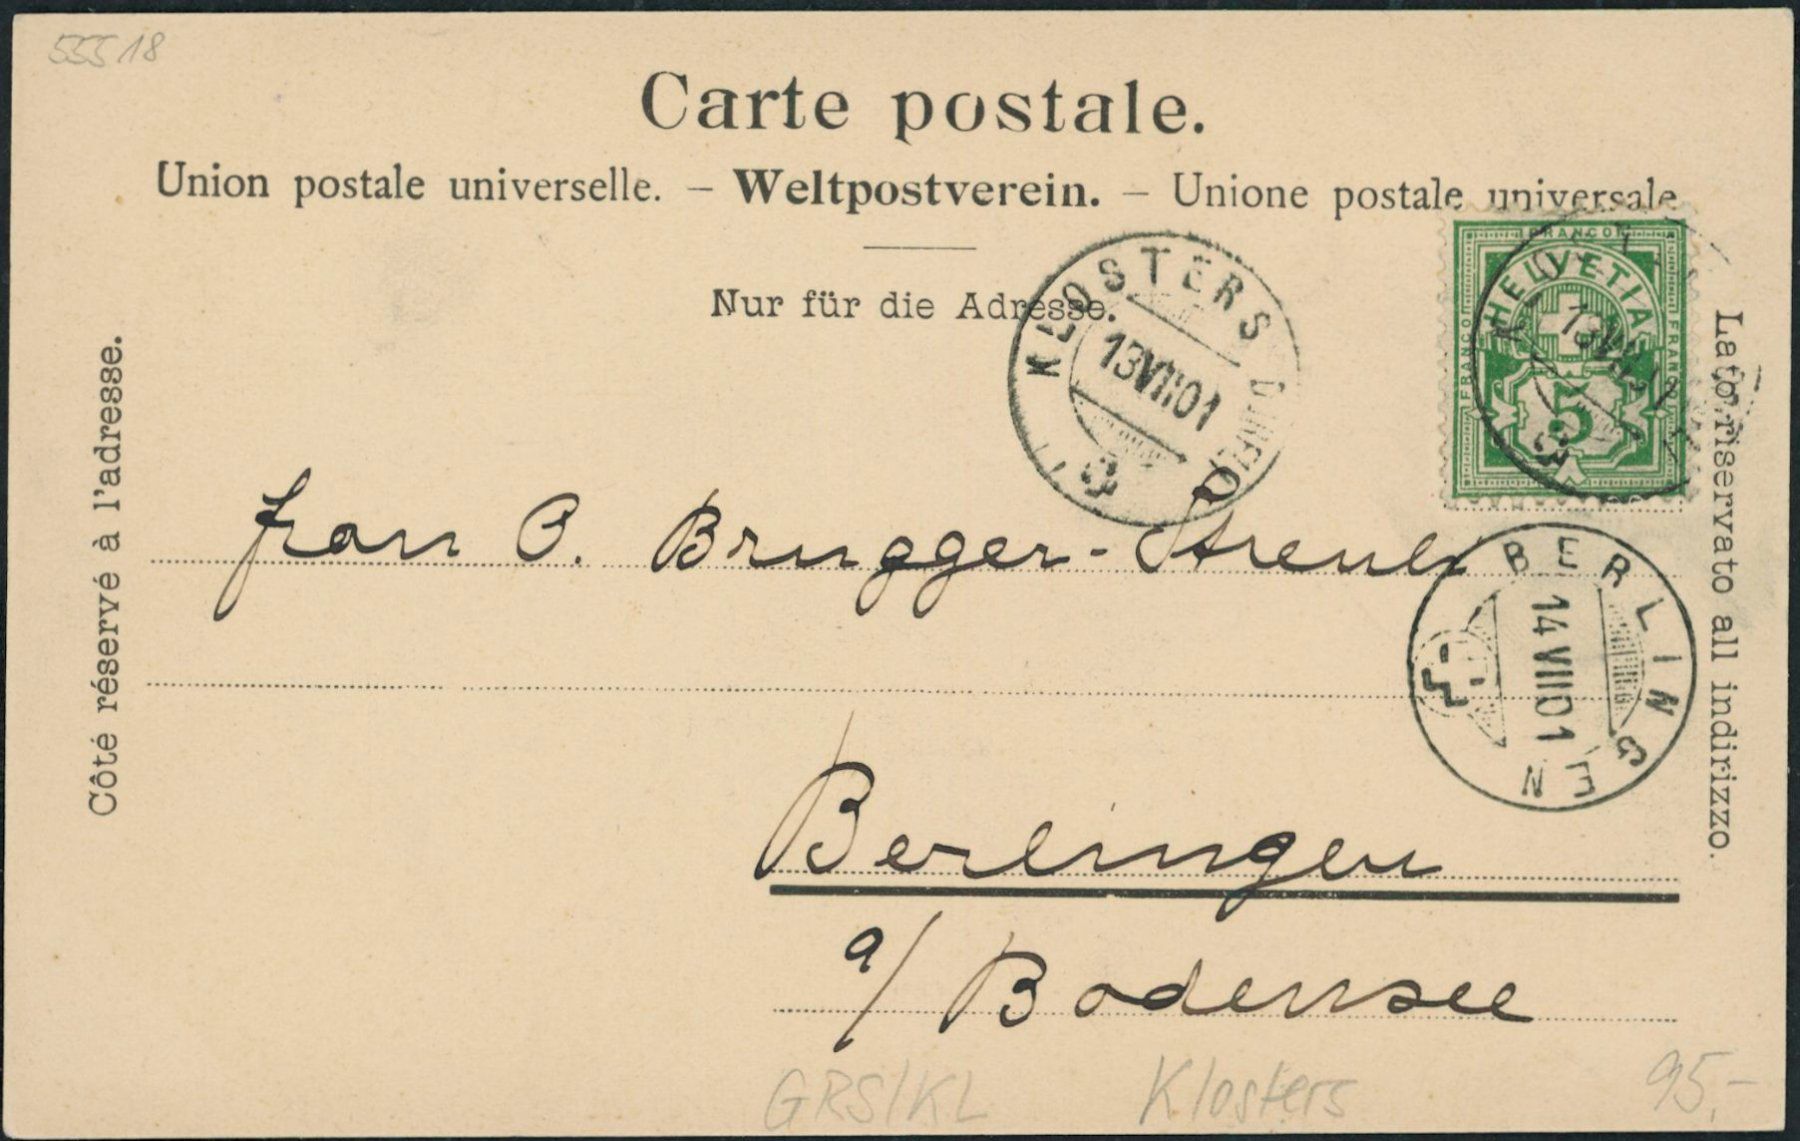 55518
Carte postale.
Union postale universelle. – Weltpostverein. – Unione postale universale
Nur für die Adresse.
Côté réservé à l'adresse.
Lato riservato all indirizzo.
FRANCO
HELVETIA
FRANCO
FRANCO
5
KLOSTERS
13VII01
13VII01
Frau B. Brugger-Streuli
BERLINGEN
14VII01
Berlingen
a/Bodensee
GRS/KL Klosters 95.-